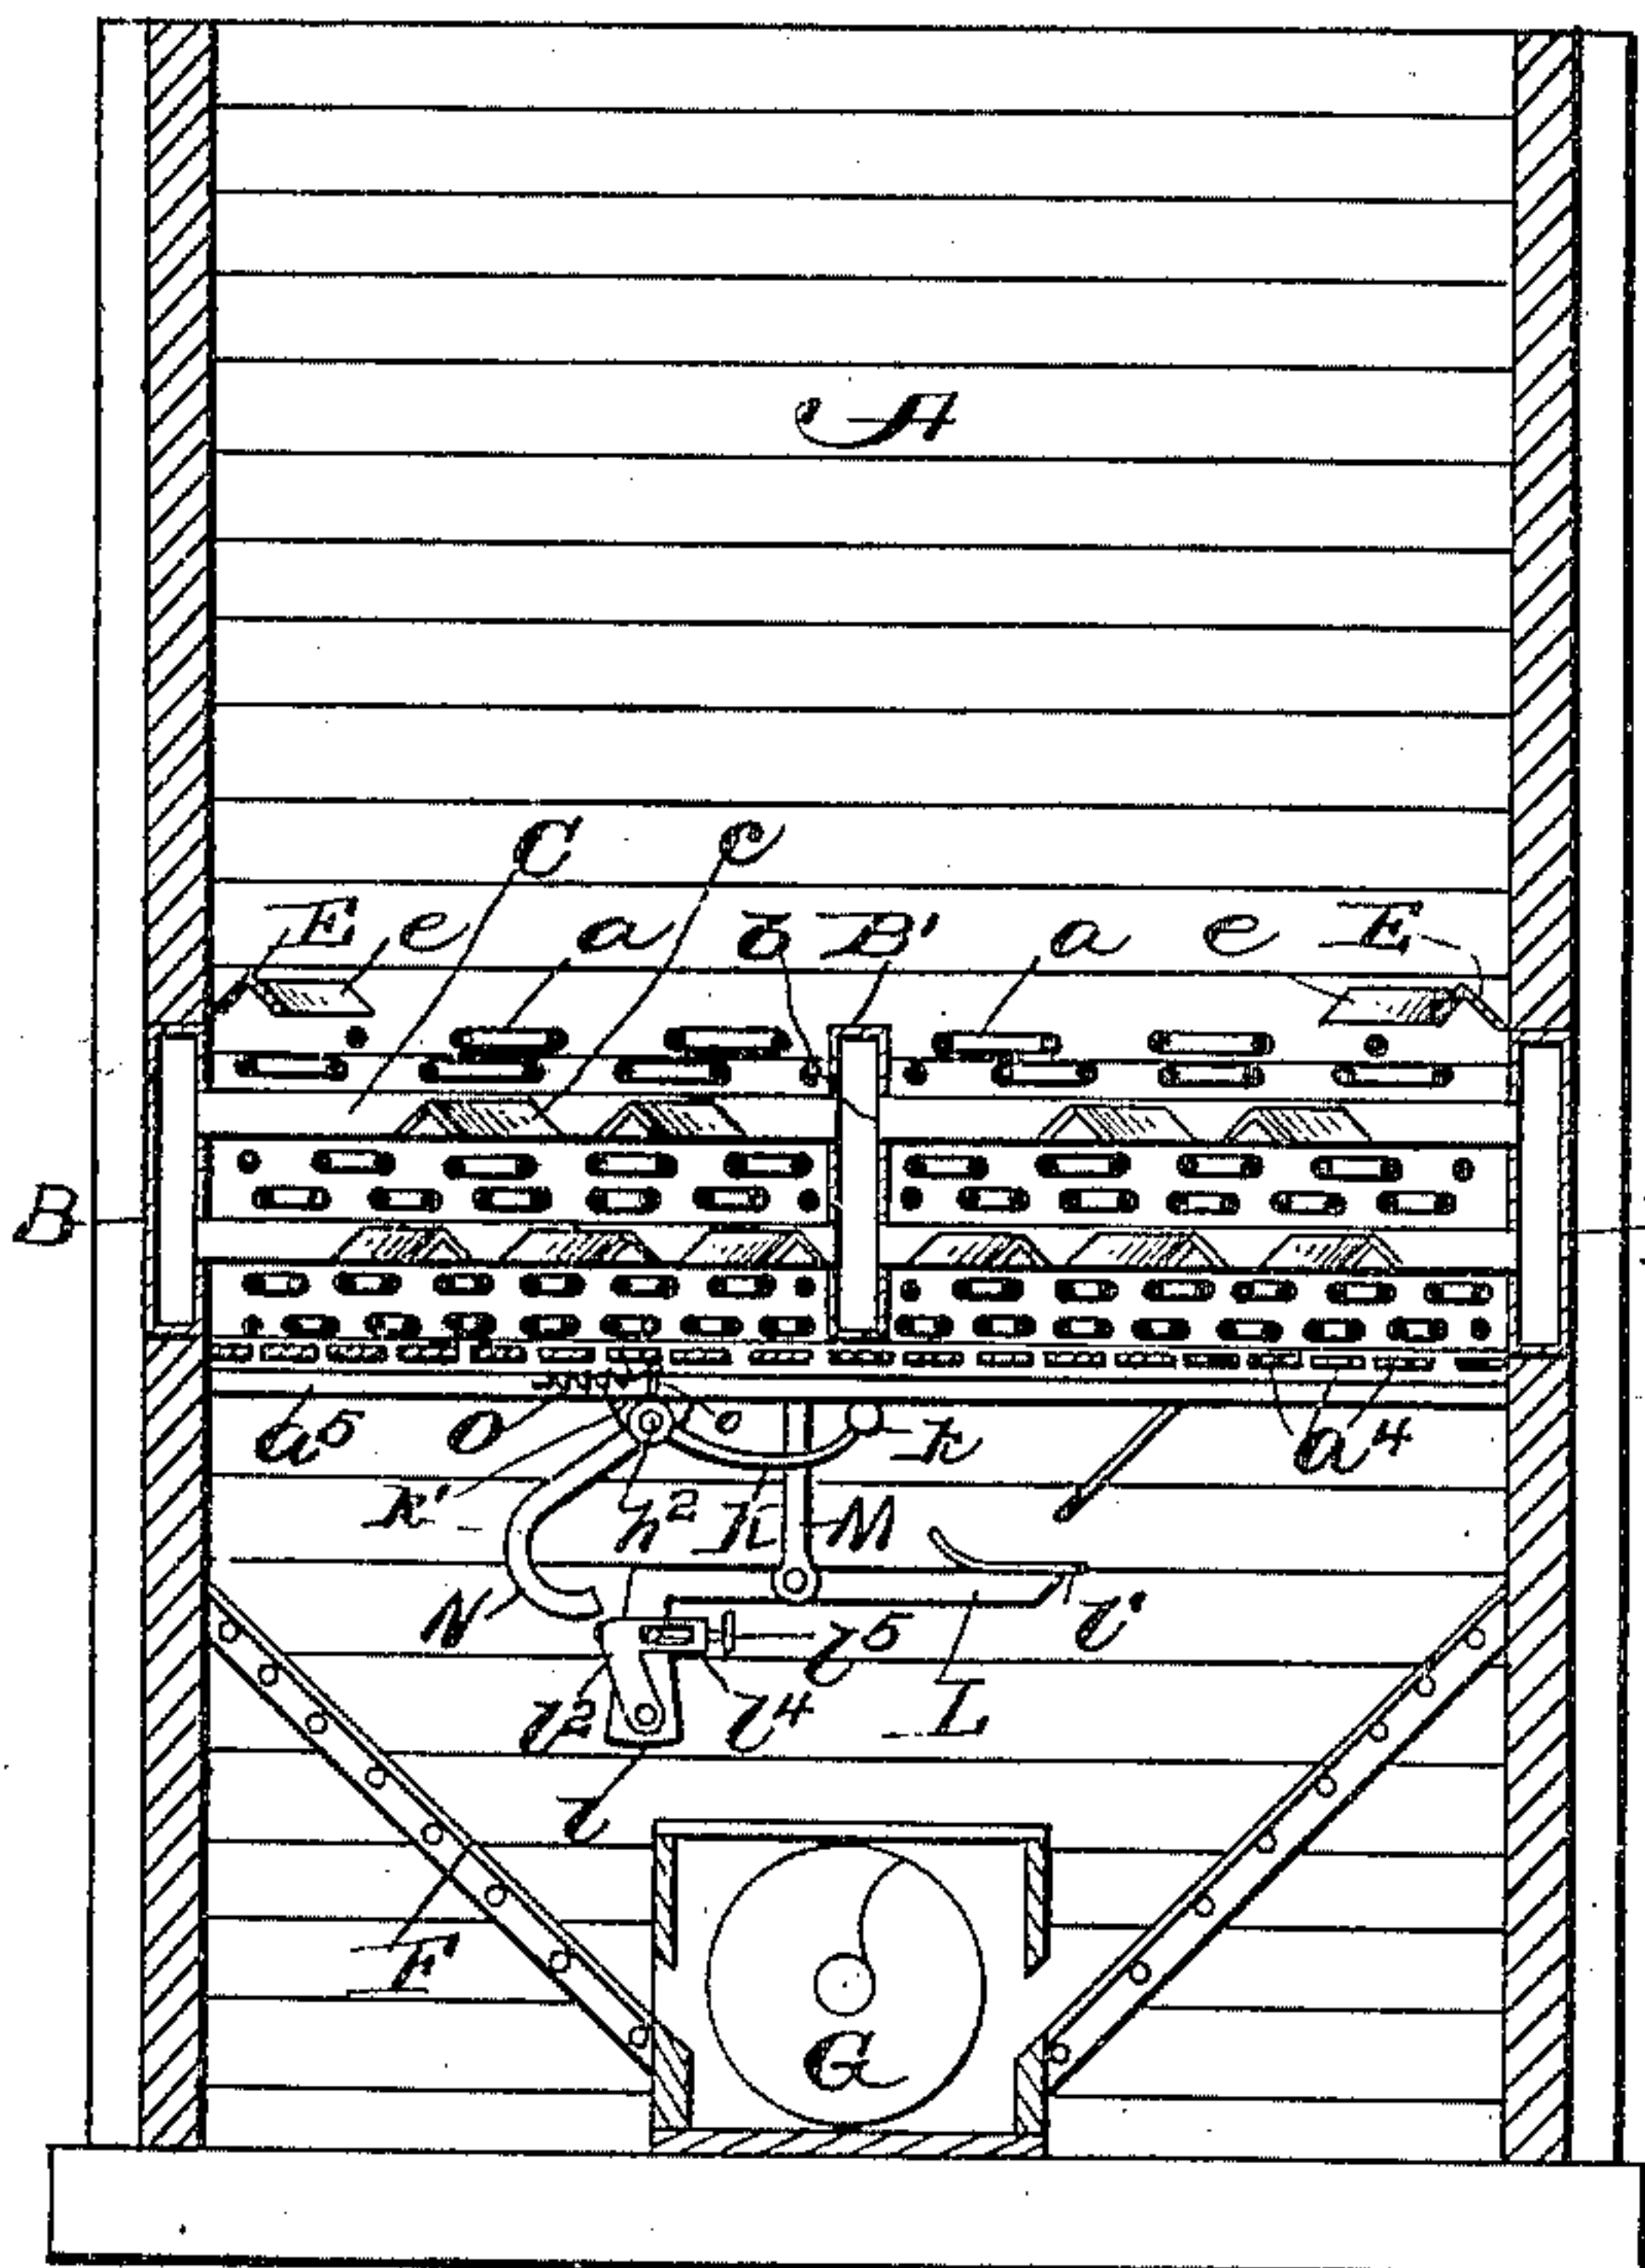 A
C c
E e a b B' a e E
B
a⁵ O o k a⁴
k' h² K M
N l⁵ l'
l² l⁴ L
l
F
G